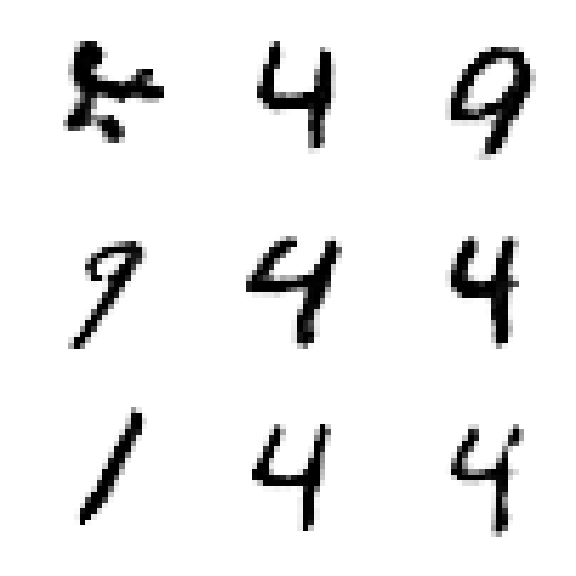 4 9
9 4 4
1 4 4